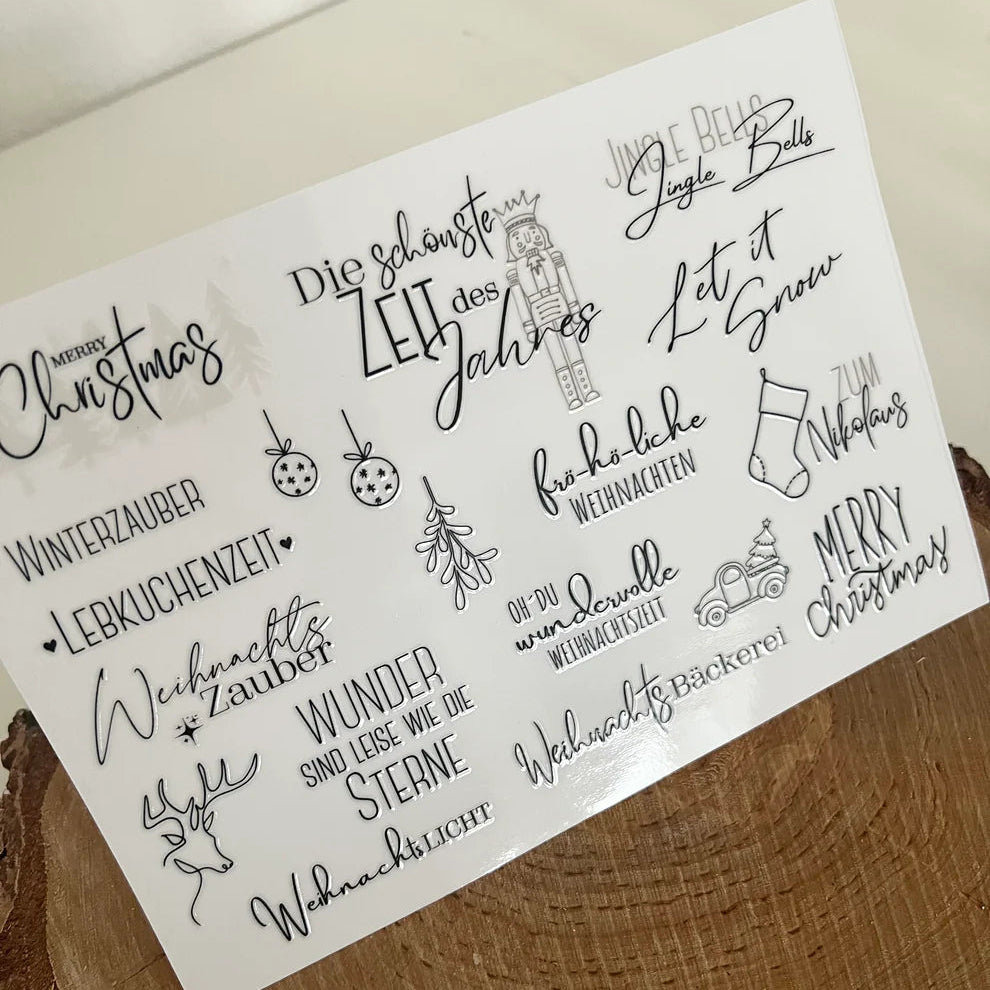 MERRY
Christmas
Die schönste
ZEIT des
Jahres
JINGLE BELLS
Jingle Bells
Let it
Snow
WINTERZAUBER
LEBKUCHENZEIT
Weihnachts
Zauber
WUNDER
SIND LEISE WIE DIE
STERNE
WeihnachtsLICHT
frö-hö-liche
WEIHNACHTEN
ZUM
Nikolaus
OH´DU
wundervolle
WEIHNACHTSZEIT
MERRY
christmas
WeihnachtsBäckerei